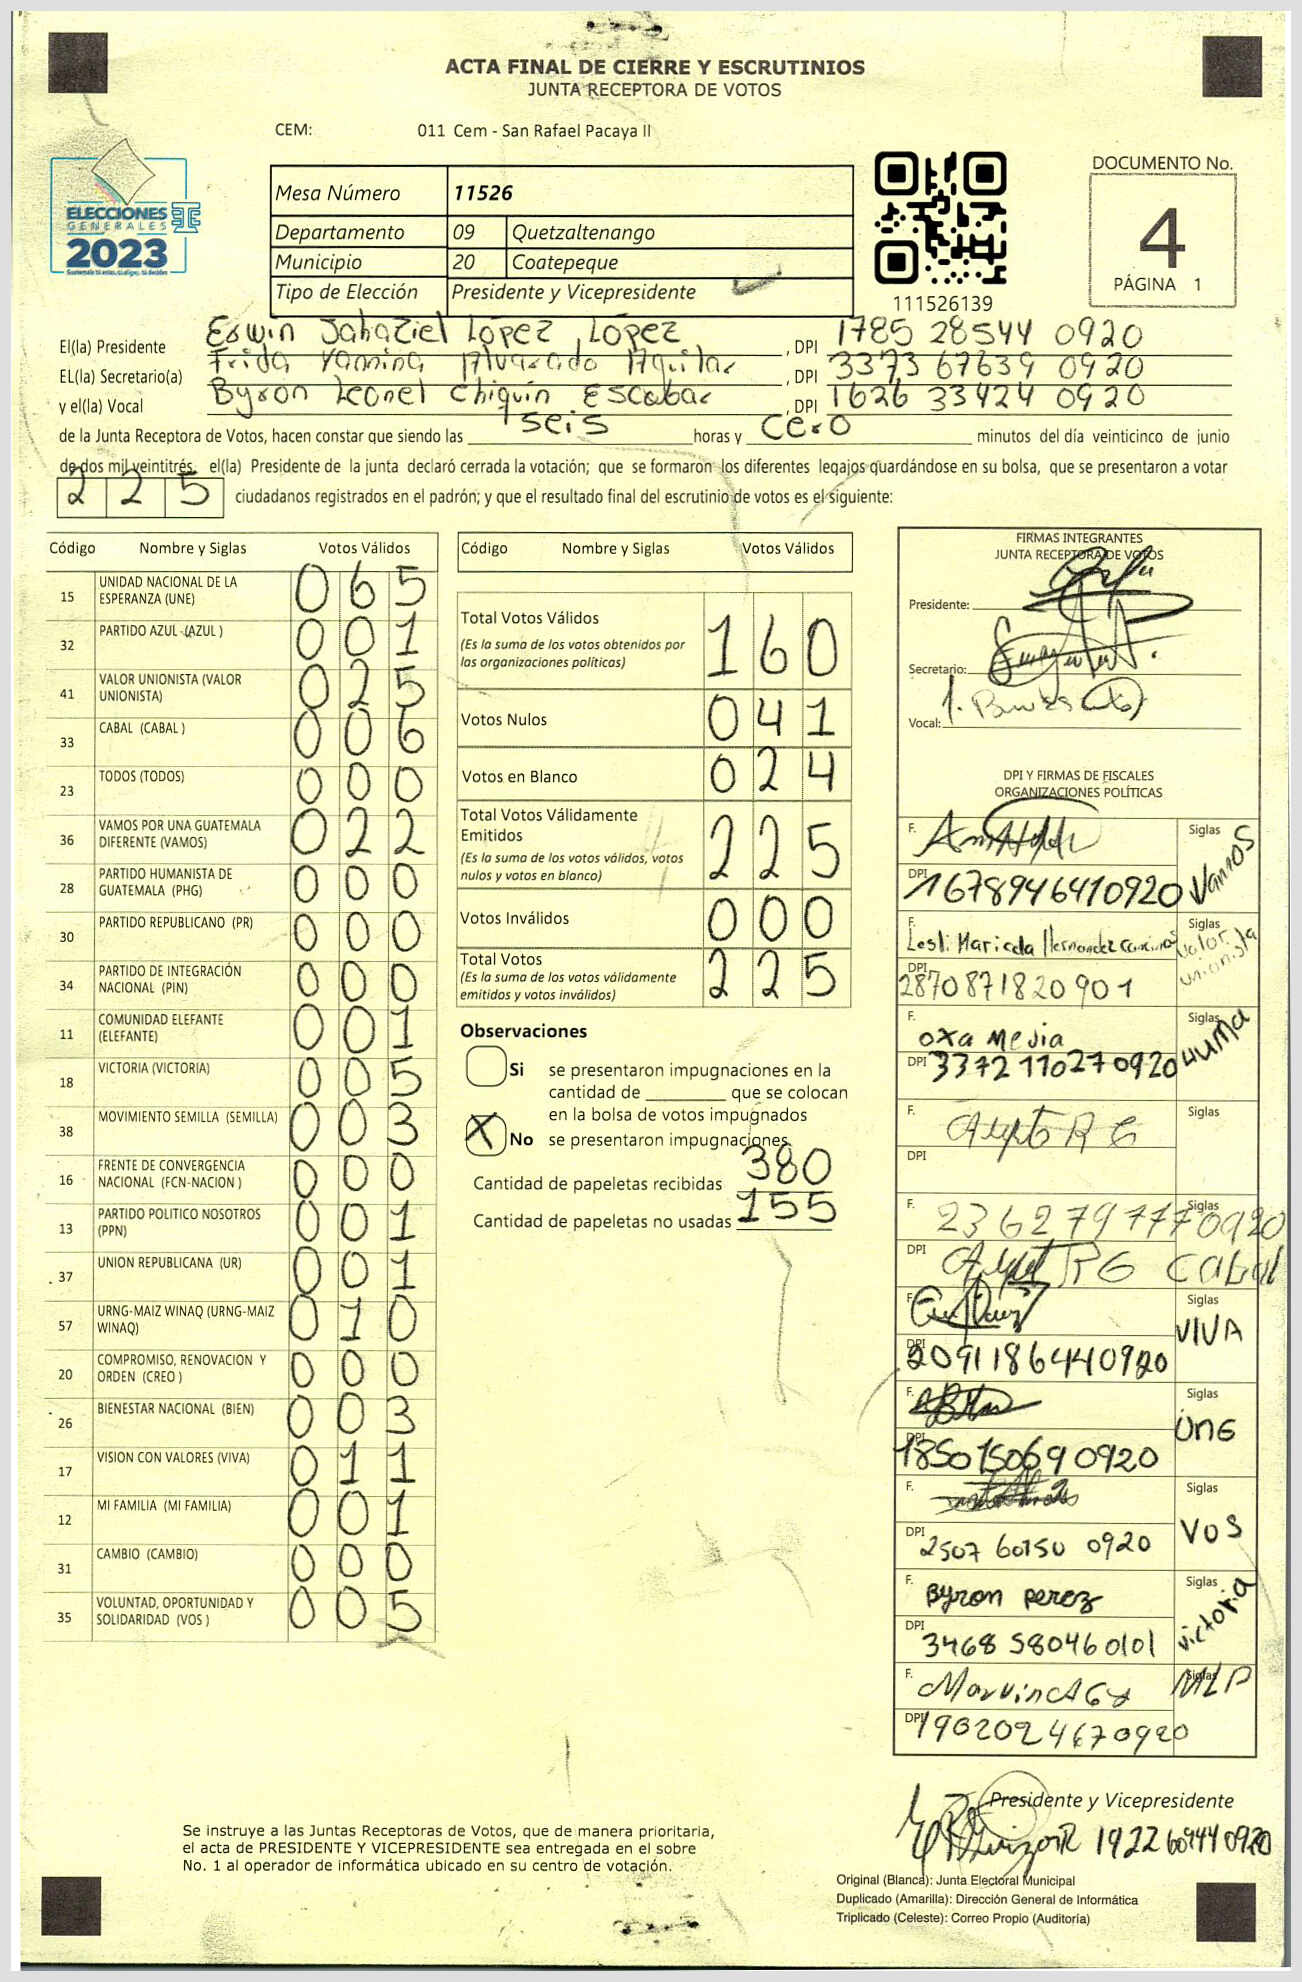 ACTA FINAL DE CIERRE Y ESCRUTINIOS
JUNTA RECEPTORA DE VOTOS
CEM: 011 Cem - San Rafael Pacaya II
ELECCIONES
GENERALES
2023
Mesa Número 11526
Departamento 09 Quetzaltenango
Municipio 20 Coatepeque
Tipo de Elección Presidente y Vicepresidente
111526139
DOCUMENTO No.
4
PÁGINA 1
El(la) Presidente Eswin Jahaziel López López, DPI 1785 28544 0920
EL(la) Secretario(a) Frida Yannina Alvarado Aguilar, DPI 3373 67639 0920
y el(la) Vocal Byron Leonel Chiquín Escobar, DPI 1626 33424 0920
de la Junta Receptora de Votos, hacen constar que siendo las seis horas y cero minutos del día veinticinco de junio
de dos mil veintitrés, el(la) Presidente de la junta declaró cerrada la votación; que se formaron los diferentes legajos guardándose en su bolsa, que se presentaron a votar
225 ciudadanos registrados en el padrón; y que el resultado final del escrutinio de votos es el siguiente:
Código Nombre y Siglas Votos Válidos
15 UNIDAD NACIONAL DE LA ESPERANZA (UNE) 065
32 PARTIDO AZUL (AZUL ) 001
41 VALOR UNIONISTA (VALOR UNIONISTA) 025
33 CABAL (CABAL ) 006
23 TODOS (TODOS) 000
36 VAMOS POR UNA GUATEMALA DIFERENTE (VAMOS) 022
28 PARTIDO HUMANISTA DE GUATEMALA (PHG) 000
30 PARTIDO REPUBLICANO (PR) 000
34 PARTIDO DE INTEGRACIÓN NACIONAL (PIN) 000
11 COMUNIDAD ELEFANTE (ELEFANTE) 001
18 VICTORIA (VICTORIA) 005
38 MOVIMIENTO SEMILLA (SEMILLA) 003
16 FRENTE DE CONVERGENCIA NACIONAL (FCN-NACION ) 000
13 PARTIDO POLITICO NOSOTROS (PPN) 001
37 UNION REPUBLICANA (UR) 001
57 URNG-MAIZ WINAQ (URNG-MAIZ WINAQ) 010
20 COMPROMISO, RENOVACION Y ORDEN (CREO ) 000
26 BIENESTAR NACIONAL (BIEN) 003
17 VISION CON VALORES (VIVA) 011
12 MI FAMILIA (MI FAMILIA) 001
31 CAMBIO (CAMBIO) 000
35 VOLUNTAD, OPORTUNIDAD Y SOLIDARIDAD (VOS ) 005
Código Nombre y Siglas Votos Válidos
Total Votos Válidos 160
(Es la suma de los votos obtenidos por
las organizaciones políticas)
Votos Nulos 041
Votos en Blanco 024
Total Votos Válidamente
Emitidos 225
(Es la suma de los votos válidos, votos
nulos y votos en blanco)
Votos Inválidos 000
Total Votos 225
(Es la suma de los votos válidamente
emitidos y votos inválidos)
Observaciones
Si se presentaron impugnaciones en la
cantidad de ________ que se colocan
en la bolsa de votos impugnados
X No se presentaron impugnaciones
Cantidad de papeletas recibidas 380
Cantidad de papeletas no usadas 155
FIRMAS INTEGRANTES
JUNTA RECEPTORA DE VOTOS
Presidente:
Secretario:
Vocal:
DPI Y FIRMAS DE FISCALES
ORGANIZACIONES POLÍTICAS
F. Siglas Vamos
DPI 1678946410920
F. Lesli Maricela Hernandez Siglas Valor unionista
DPI 2870871820901
F. Oxa Mejia Siglas
DPI 3372110270920
F. Siglas
DPI
F. 2362797770920 Siglas
DPI Cabal
F. Siglas VIVA
DPI 2091186440920
F. Siglas UNE
DPI 1850150690920
F. Siglas VOS
DPI 2507 60150 0920
F. Byron Perez Siglas victoria
DPI 3468 58046 0101
F. Siglas MLP
DPI 1902024670920
Presidente y Vicepresidente
1922 60944 0920
Se instruye a las Juntas Receptoras de Votos, que de manera prioritaria,
el acta de PRESIDENTE Y VICEPRESIDENTE sea entregada en el sobre
No. 1 al operador de informática ubicado en su centro de votación.
Original (Blanca): Junta Electoral Municipal
Duplicado (Amarilla): Dirección General de Informática
Triplicado (Celeste): Correo Propio (Auditoría)